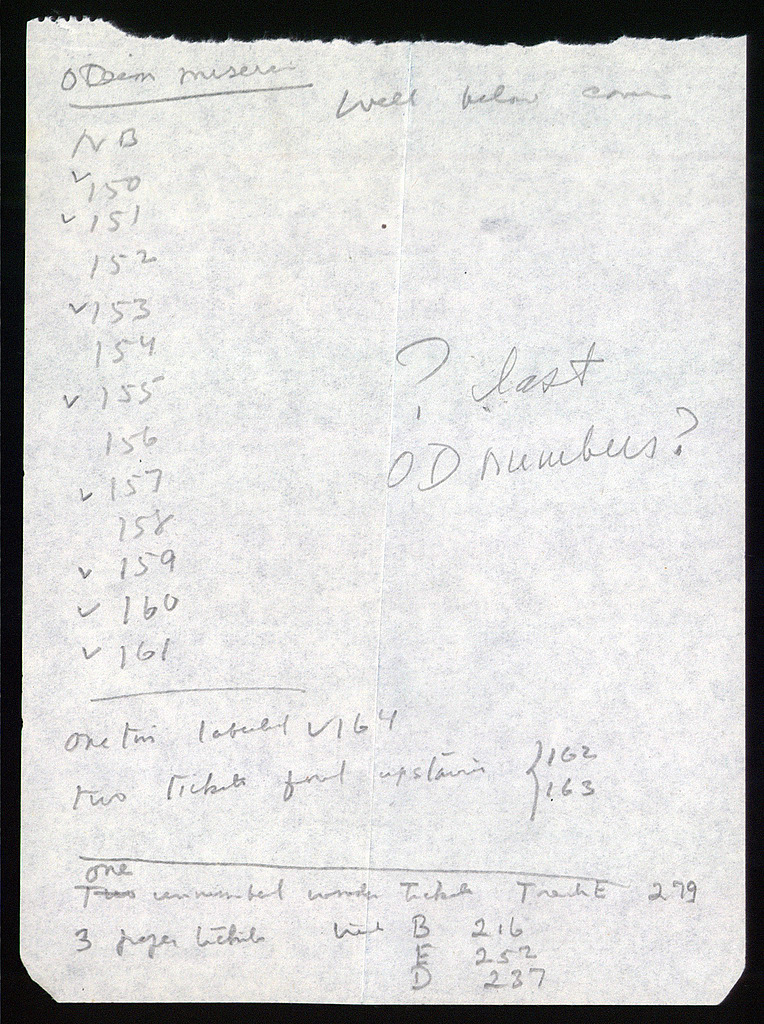 OD
well below
NB
✓150
✓151
152
✓153
154
✓155
156
✓157
158
✓159
✓160
✓161
? last
OD numbers?
one tin labelled ✓164
two tickets found upstairs { 162
163
one
Two unnumbered wooden tickets Trench E 279
3 paper tickets B 216
E 252
D 237